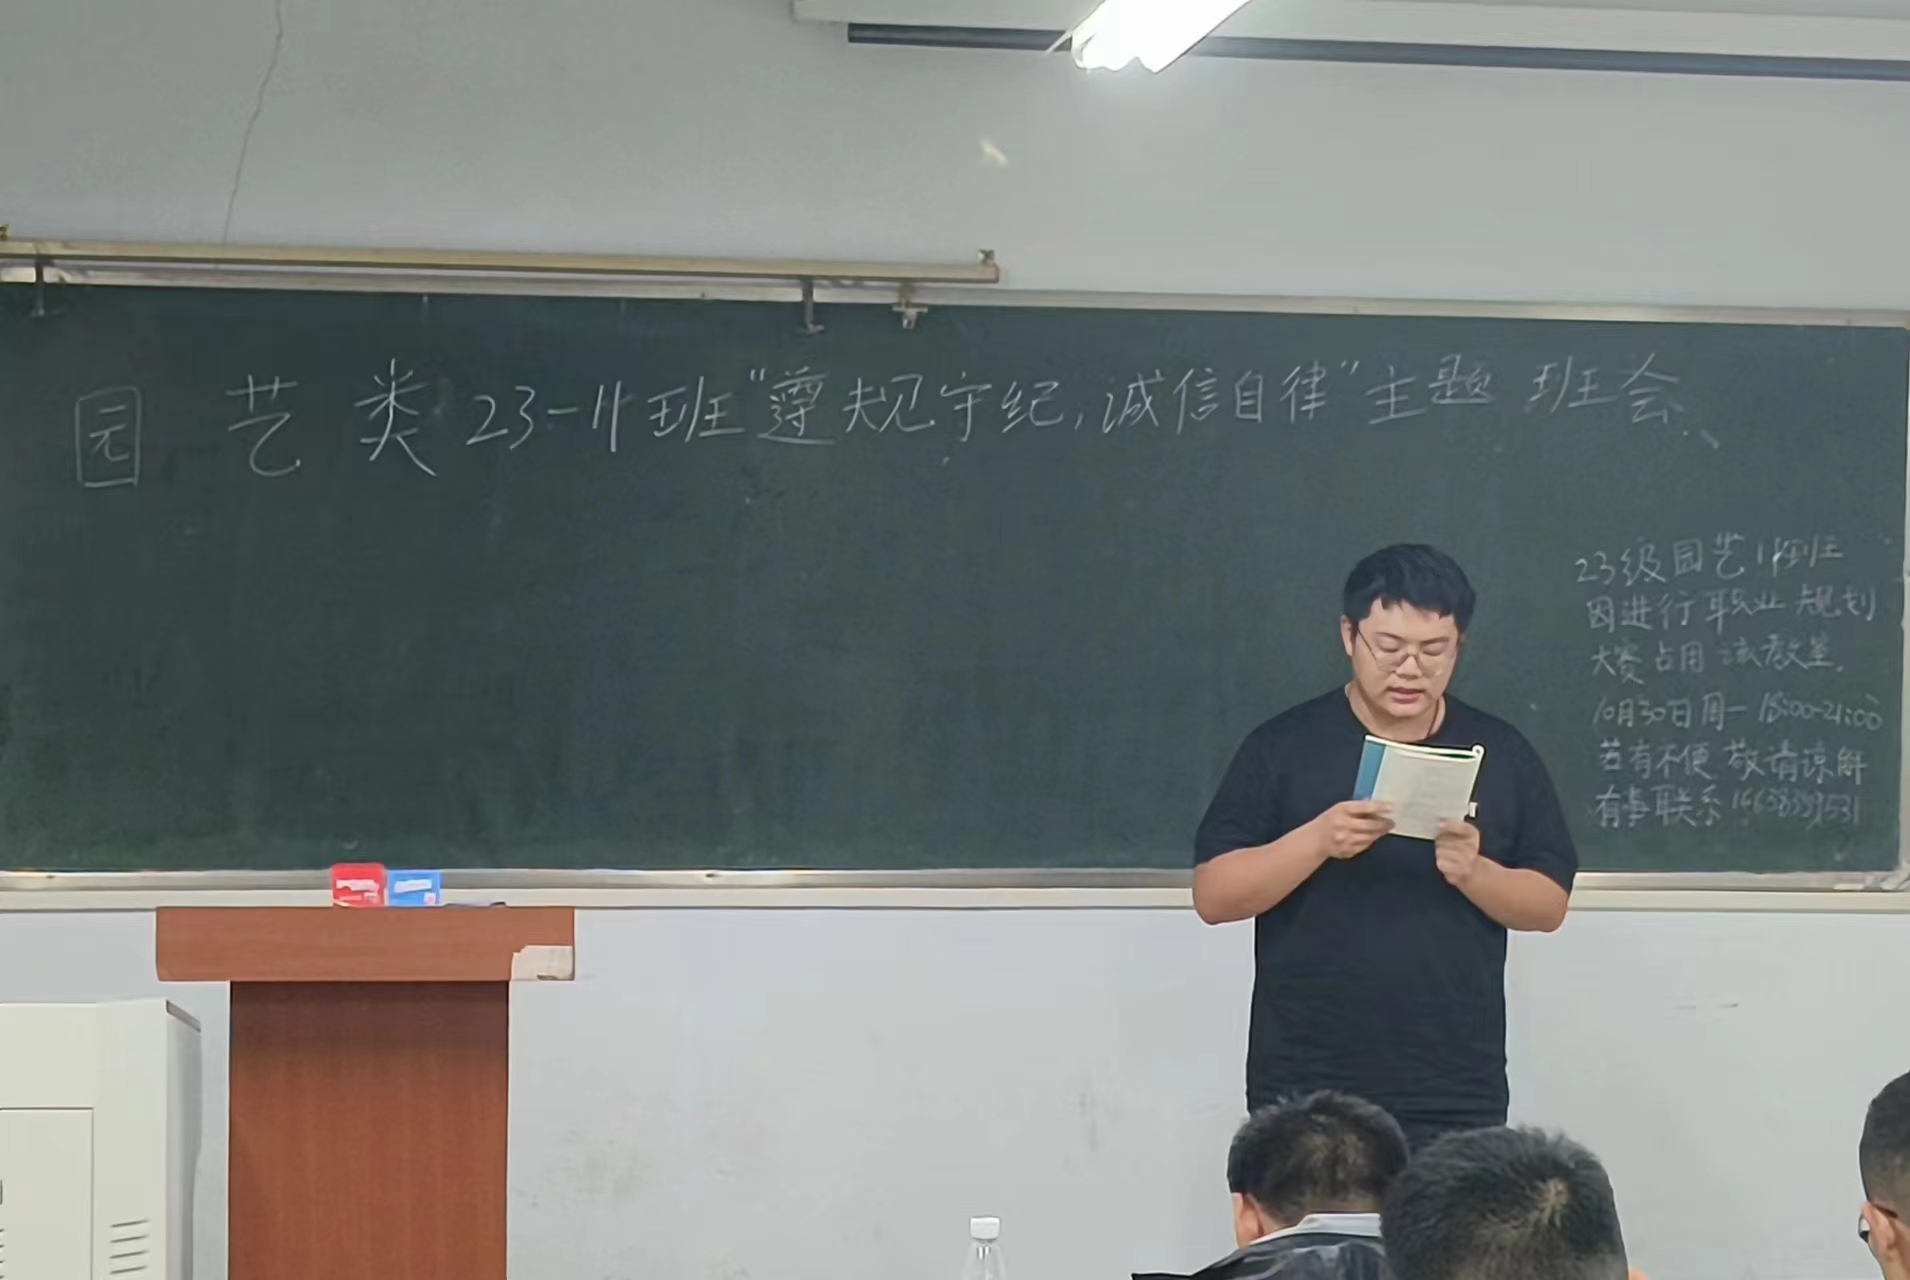 园艺类23-11班“遵规守纪,诚信自律”主题班会.
23级园艺11班
因进行职业规划
大赛占用该教室.
10月30日周一 18:00-21:00
若有不便 敬请谅解
有事联系